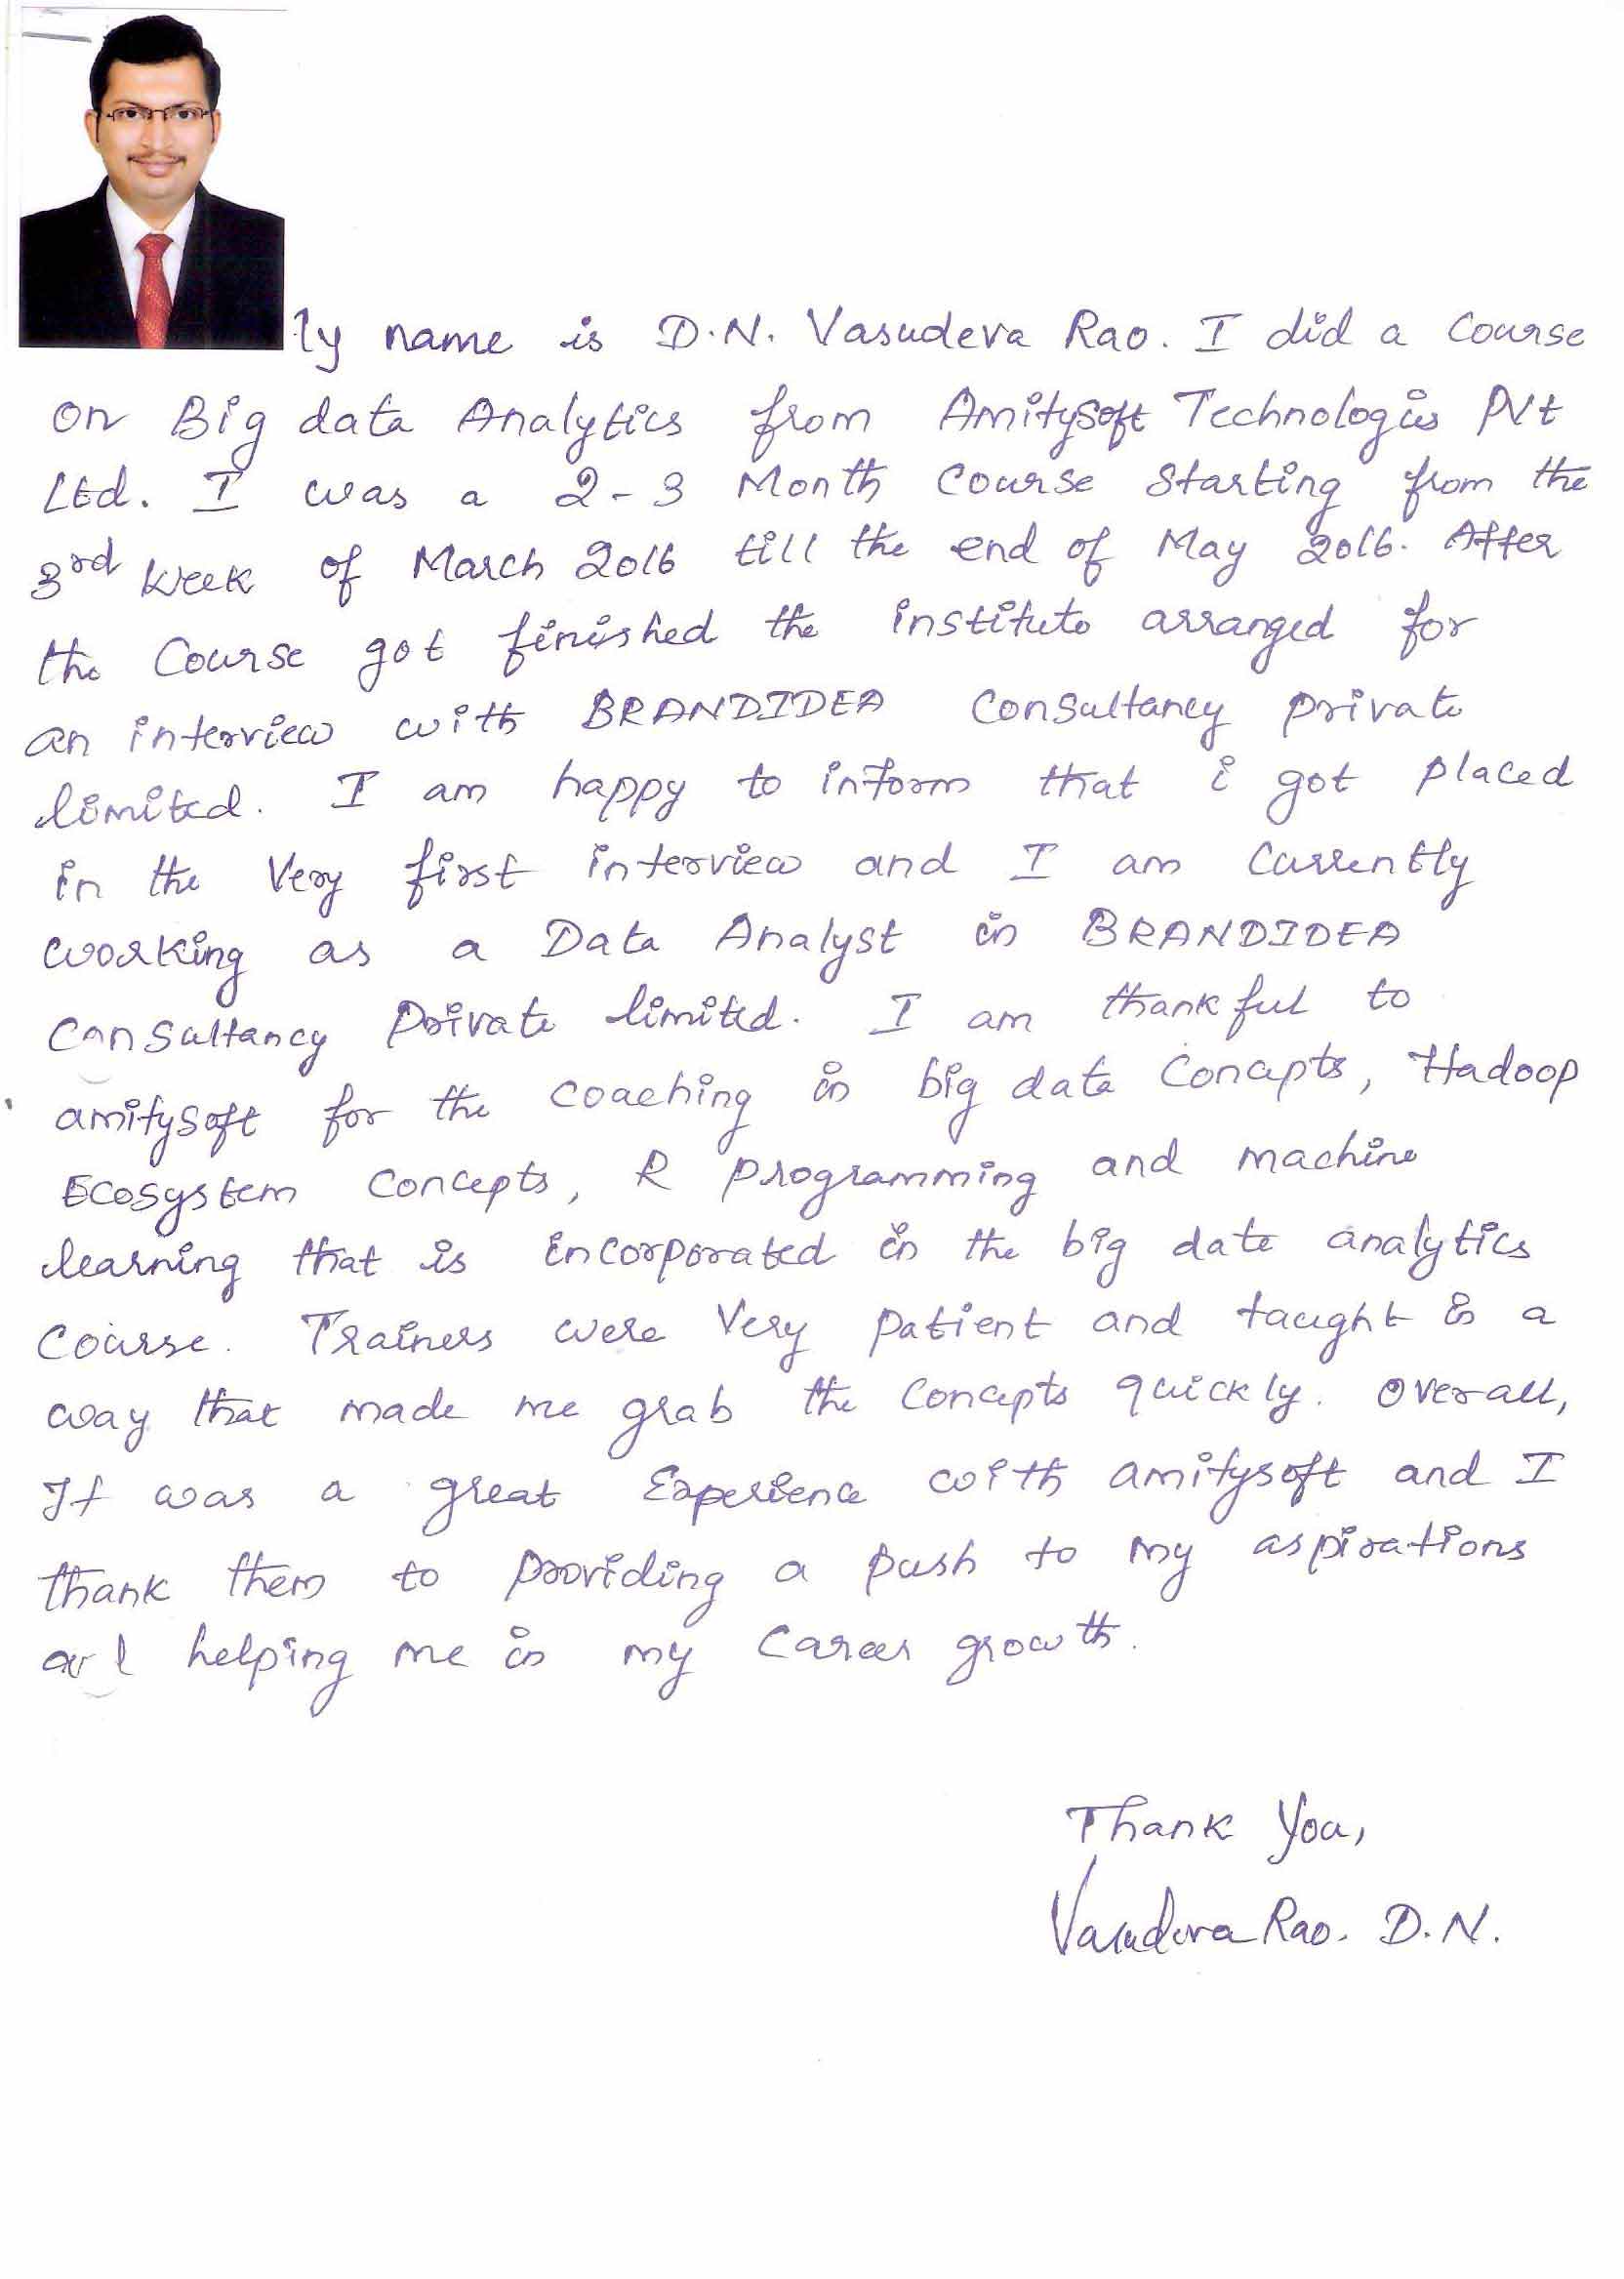 ly name is D.N. Vasudeva Rao. I did a Course
on Big data Analytics from Amitysoft Technologies Pvt
Ltd. I was a 2-3 Month Course Starting from the
3rd Week of March 2016 till the end of May 2016. After
the Course got finished the institute arranged for
an interview with BRANDIDEA Consultancy private
limited. I am happy to inform that i got placed
in the Very first interview and I am Currently
working as a Data Analyst in BRANDIDEA
Consultancy Private limited. I am thankful to
amitysoft for the coaching in big data Concepts, Hadoop
Ecosystem Concepts, R programming and machine
learning that is incorporated in the big data analytics
Course. Trainers were Very patient and taught in a
way that made me grab the Concepts quickly. Overall,
It was a great Experience with amitysoft and I
thank them to providing a push to my aspirations
and helping me in my Career growth.
Thank You,
Vasudeva Rao. D.N.